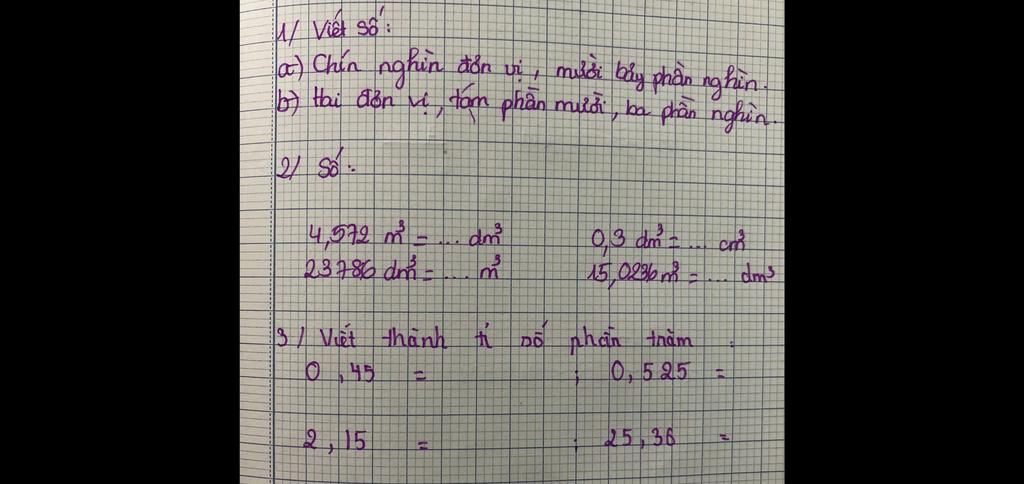 1/ Viết số:
a) Chín nghìn đơn vị, mười bảy phần nghìn.
b) Hai đơn vị, tám phần mười, ba phần nghìn.
2/ Số:
4,572 m³ = ... dm³ 0,3 dm³ = ... cm³
23786 dm³ = ... m³ 15,0236 m³ = ... dm³
3/ Viết thành tỉ số phần trăm:
0,45 = ; 0,525 =
2,15 = ; 25,36 =